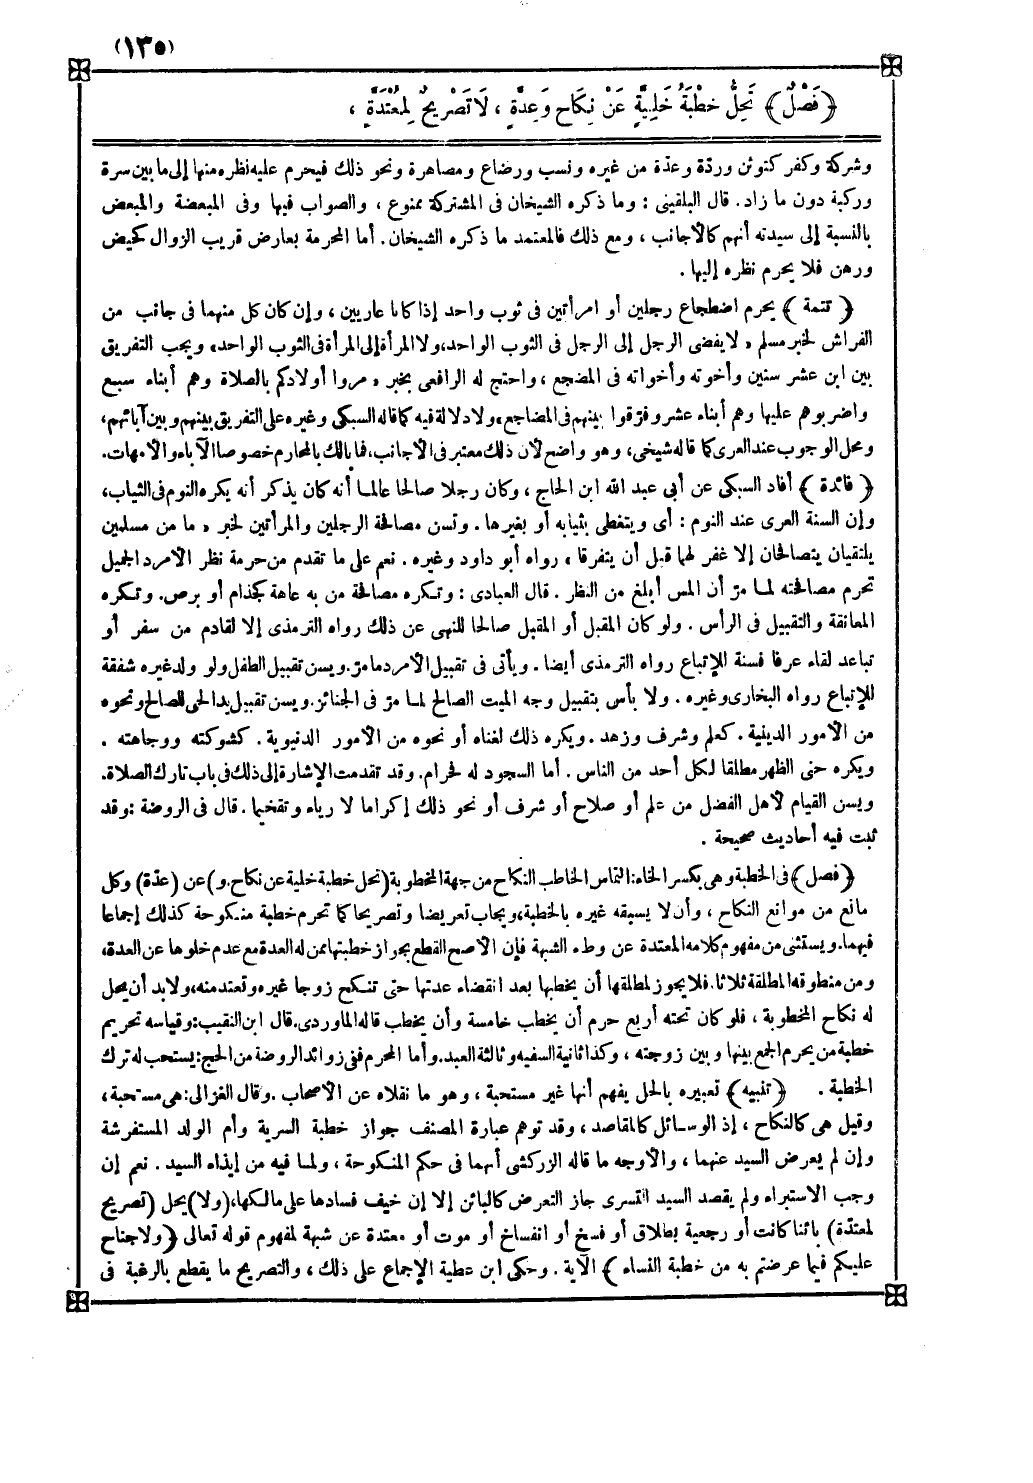 (١٣٥)
﴿ فَصْلٌ ﴾ تَحِلُّ خِطْبَةُ خَلِيَّةٍ عَنْ نِكَاحٍ وَعِدَّةٍ ، لَا تَصْرِيحٌ لِمُعْتَدَّةٍ ،
وشركة وكفر كتوثن وردة وعدة من غيره ونسب ورضاع ومصاهرة ونحو ذلك فيحرم عليه نظره منها إلى ما بين سرة
وركبة دون ما زاد. قال البلقينى : وما ذكره الشيخان فى المشتركة ممنوع ، والصواب فيها وفى المبعضة والمبعض
بالنسبة إلى سيدته أنهم كالأجانب ، ومع ذلك فالمعتمد ما ذكره الشيخان. أما المحرمة بعارض قريب الزوال كحيض
ورهن فلا يحرم نظره إليها .
﴿ تتمة ﴾ يحرم اضطجاع رجلين أو امرأتين فى ثوب واحد إذا كانا عاريين ، وإن كان كل منهما فى جانب من
الفراش لخبر مسلم « لا يفضى الرجل إلى الرجل فى الثوب الواحد، ولا المرأة إلى المرأة فى الثوب الواحد» ويجب التفريق
بين ابن عشر سنين وأخوته وأخواته فى المضجع ، واحتج له الرافعى بخبر « مروا أولادكم بالصلاة وهم أبناء سبع
واضربوهم عليها وهم أبناء عشر وفرّقوا بينهم فى المضاجع» ولا دلالة فيه كما قاله السبكى وغيره على التفريق بينهم وبين آبائهم،
ومحل الوجوب عند العرى كما قاله شيخى، وهو واضح لأن ذلك معتبر فى الأجانب، فما بالك بالمحارم خصوصا الآباء والأمهات.
﴿ فائدة ﴾ أفاد السبكى عن أبى عبد الله ابن الحاج ، وكان رجلا صالحا عالما أنه كان يذكر أنه يكره النوم فى الثياب،
وإن السنة العرى عند النوم : أى ويتغطى بثيابه أو بغيرها . وتسن مصافحة الرجلين والمرأتين لخبر « ما من مسلمين
يلتقيان يتصافحان إلا غفر لهما قبل أن يتفرقا » رواه أبو داود وغيره . نعم على ما تقدم من حرمة نظر الأمرد الجميل
تحرم مصافحته لما مرّ أن المس أبلغ من النظر . قال العبادى : وتكره مصافحة من به عاهة كجذام أو برص. وتكره
المعانقة والتقبيل فى الرأس . ولو كان المقبل أو المقبل صالحا للنهى عن ذلك رواه الترمذى إلا لقادم من سفر أو
تباعد لقاء عرفا فسنة للإتباع رواه الترمذى أيضا . ويأتى فى تقبيل الأمرد ما مرّ. ويسن تقبيل الطفل ولو ولد غيره شفقة
للإتباع رواه البخارى وغيره . ولا بأس بتقبيل وجه الميت الصالح لما مرّ فى الجنائز. ويسن تقبيل يد الحى الصالح ونحوه
من الأمور الدينية . كعلم وشرف وزهد . ويكره ذلك لغناه أو نحوه من الأمور الدنيوية . كشوكته ووجاهته .
ويكره حنى الظهر مطلقا لكل أحد من الناس . أما السجود له فحرام. وقد تقدمت الإشارة إلى ذلك فى باب تارك الصلاة.
ويسن القيام لأهل الفضل من علم أو صلاح أو شرف أو نحو ذلك إكراما لا رياء وتفخيما . قال فى الروضة : وقد
ثبت فيه أحاديث صحيحة .
﴿ فصل ﴾ فى الخطبة وهى بكسر الخاء: التماس الخاطب النكاح من جهة المخطوبة (تحل خطبة خلية عن نكاح. و) عن (عدّة) وكل
مانع من موانع النكاح ، وأن لا يسبقه غيره بالخطبة، ويجاب تعريضا وتصريحا كما تحرم خطبة منكوحة كذلك إجماعا
فيهما. ويستثنى من مفهوم كلامه المعتدة عن وطء الشبهة فإن الأصح القطع بجواز خطبتها ممن له العدة مع عدم خلوها عن العدة،
ومن منطوقه المطلقة ثلاثا. فلا يجوز لمطلقها أن يخطبها بعد انقضاء عدتها حتى تنكح زوجا غيره وتعتد منه، ولا بد أن يحل
له نكاح المخطوبة ، فلو كان تحته أربع حرم أن يخطب خامسة وأن يخطب قاله الماوردى. قال ابن النقيب: وقياسه تحريم
خطبة من يحرم الجمع بينها وبين زوجته ، وكذا ثانية السفيه وثالثة العبد. وأما المحرم ففى زوائد الروضة من الحج: يستحب له ترك
الخطبة . ﴿ تنبيه ﴾ تعبيره بالحل يفهم أنها غير مستحبة ، وهو ما نقلاه عن الأصحاب . وقال الغزالى : هى مستحبة ،
وقيل هى كالنكاح ، إذ الوسائل كالمقاصد ، وقد توهم عبارة المصنف جواز خطبة السرية وأم الولد المستفرشة
وإن لم يعرض السيد عنهما ، والأوجه ما قاله الزركشى أنهما فى حكم المنكوحة ، ولما فيه من إيذاء السيد . نعم إن
وجب الاستبراء ولم يقصد السيد التسرى جاز التعرض كالبائن إلا إن خيف فسادها على مالكها، (ولا) يحل (تصريح
لمعتدّة) بائنا كانت أو رجعية بطلاق أو فسخ أو انفساخ أو موت أو معتدة عن شبهة لمفهوم قوله تعالى ﴿ ولا جناح
عليكم فيما عرضتم به من خطبة النساء ﴾ الآية . وحكى ابن عطية الإجماع على ذلك ، والتصريح ما يقطع بالرغبة فى